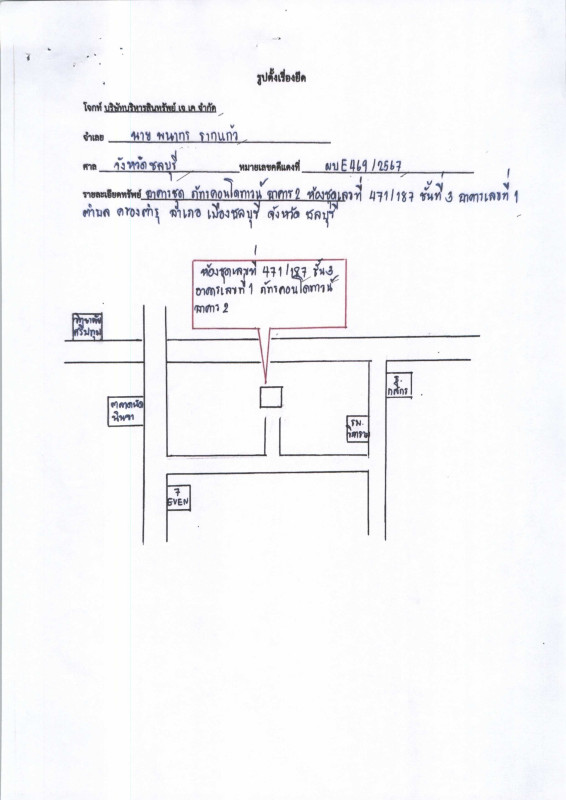 รูปตั้งเรื่องยึด
โจทก์ บริษัทบริหารสินทรัพย์ เจ.เค จำกัด
จำเลย นาย พนากร รากแก้ว
ศาล จังหวัดชลบุรี หมายเลขคดีแดงที่ ผบE469/2567
รายละเอียดทรัพย์ อาคารชุด ภัทรคอนโดทาวน์ อาคาร 2 ห้องชุดเลขที่ 471/187 ชั้นที่ 3 อาคารเลขที่ 1
ตำบล คลองตำหรุ อำเภอ เมืองชลบุรี จังหวัด ชลบุรี
ห้องชุดเลขที่ 471/187 ชั้น3
อาคารเลขที่ 1 ภัทรคอนโดทาวน์
อาคาร 2
วิทยาลัย
ศรีปทุม
ธ.
กสิกร
ตลาดนัด
รพ.
7
EVEN